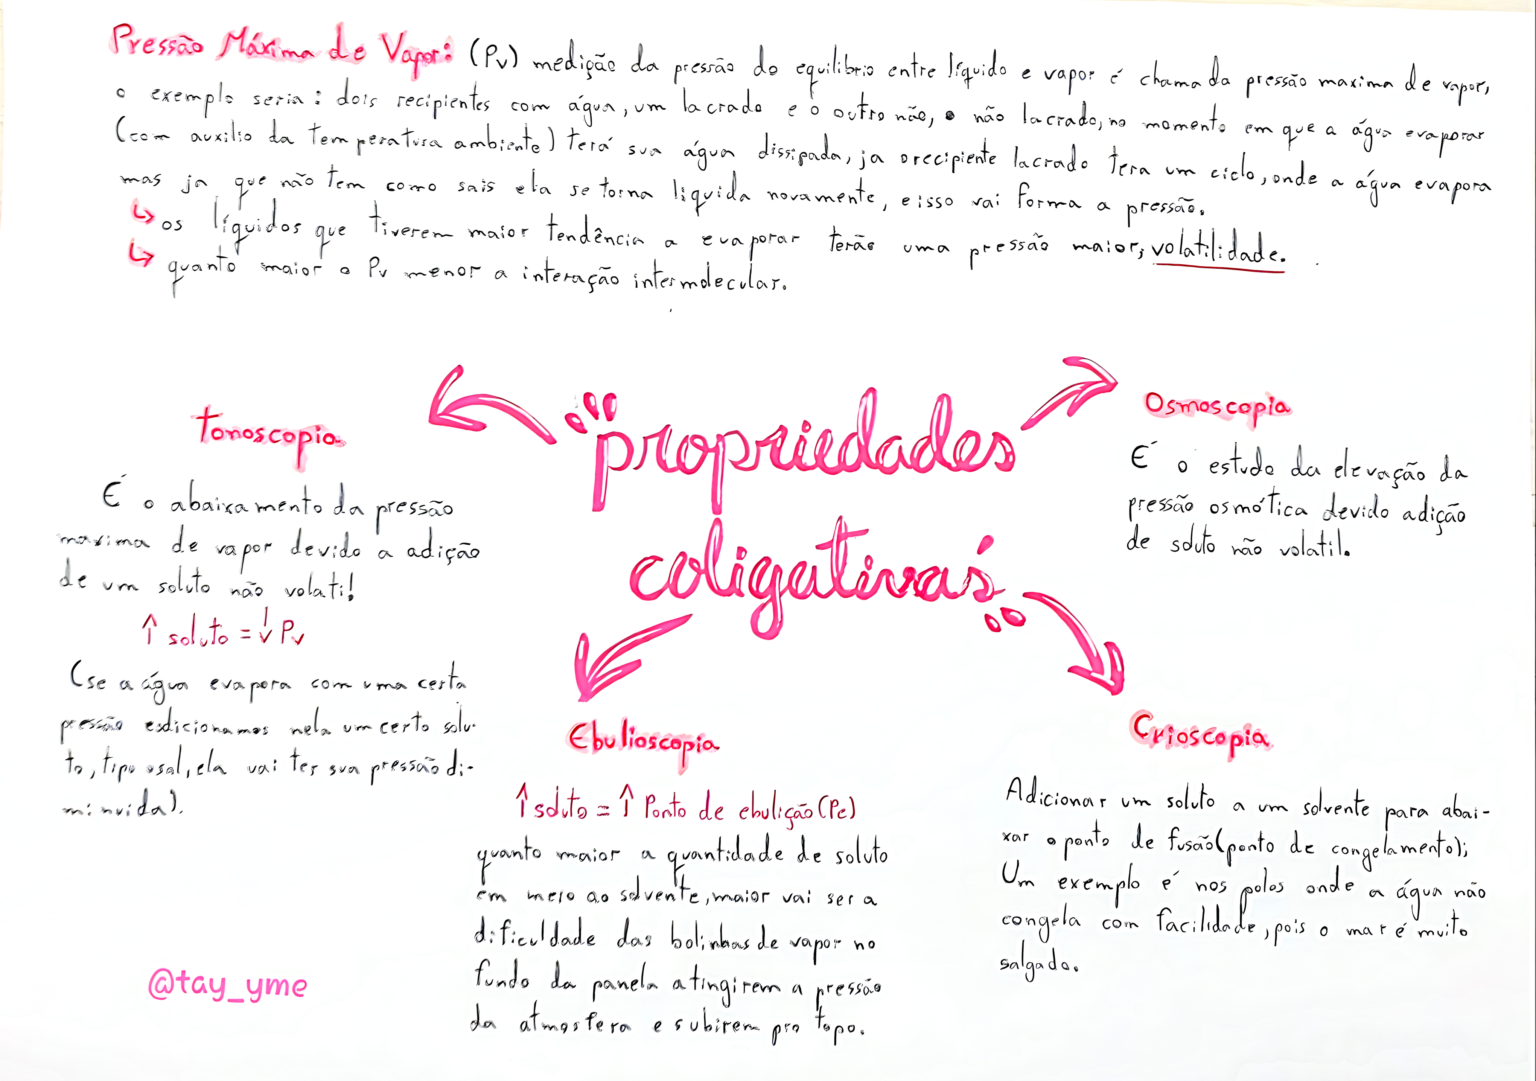 Pressão Máxima de Vapor: (Pv) medição da pressão do equilibrio entre líquido e vapor é chamada pressão maxima de vapor,
o exemplo seria: dois recipientes com água, um lacrado e o outro não, o não lacrado, no momento em que a água evaporar
(com auxilio da temperatura ambiente) terá sua água dissipada, ja o recipiente lacrado tera um ciclo, onde a água evapora
mas ja que não tem como sais ela se torna líquida novamente, e isso vai forma a pressão.
↳ os líquidos que tiverem maior tendência a evaporar terão uma pressão maior, volatilidade.
↳ quanto maior o Pv menor a interação intermolecular.
propriedades
coligativas
Tonoscopia
É o abaixamento da pressão
maxima de vapor devido a adição
de um soluto não volatil
↑ soluto = ↓ Pv
(se a água evapora com uma certa
pressão e adicionamos nela um certo solu-
to, tipo o sal, ela vai ter sua pressão di-
minuida).
Osmoscopia
É o estudo da elevação da
pressão osmótica devido adição
de soluto não volatil.
Ebulioscopia
↑ soluto = ↑ Ponto de ebulição (Pe)
quanto maior a quantidade de soluto
em meio ao solvente, maior vai ser a
dificuldade das bolinhas de vapor no
fundo da panela atingirem a pressão
da atmosfera e subirem pro topo.
Crioscopia
Adicionar um soluto a um solvente para abai-
xar o ponto de fusão (ponto de congelamento);
Um exemplo é nos polos onde a água não
congela com facilidade, pois o mar é muito
salgado.
@tay_yme